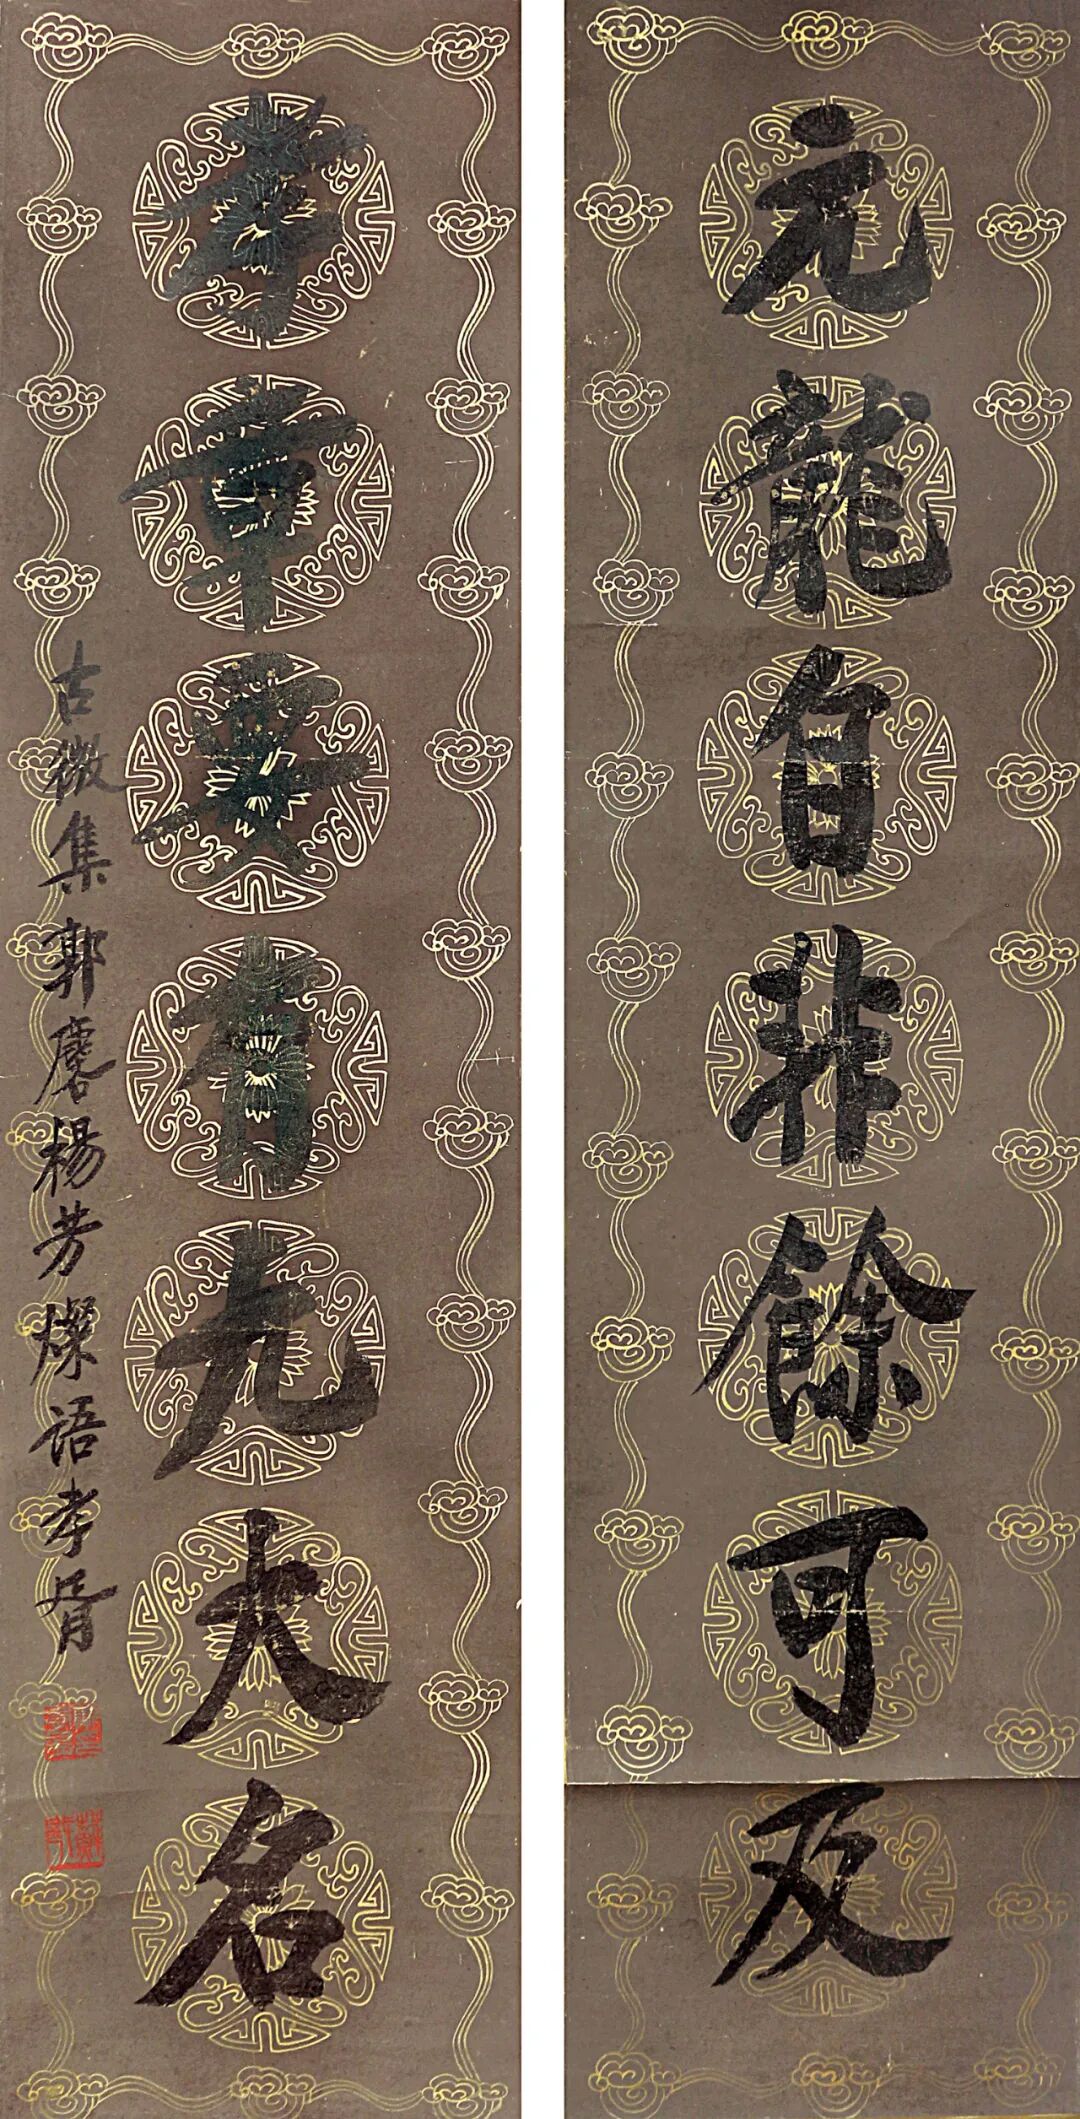 元龍自非餘可及
孝章要有九大名
古微集郭麐楊芳燦語孝胥
蘇戡